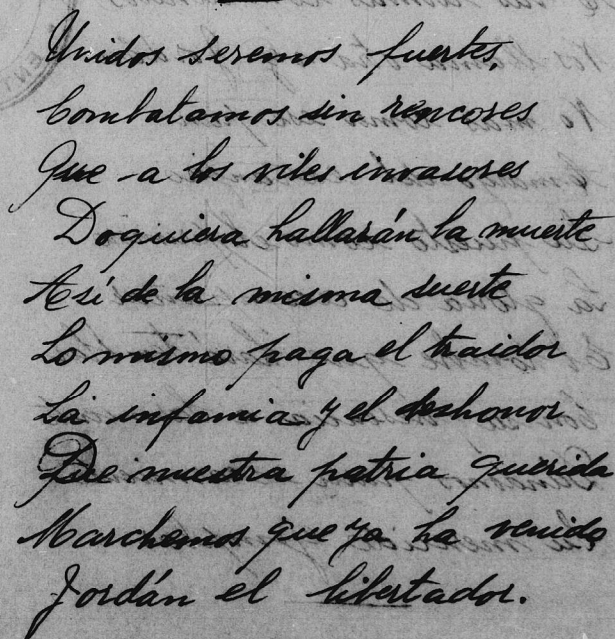 Unidos seremos fuertes,
Combatamos sin rencores
Que a los viles invasores
Doquiera hallarán la muerte
Así de la misma suerte
Lo mismo paga el traidor
La infamia y el deshonor
De nuestra patria querida
Marchemos que ya ha venido
Jordán el libertador.